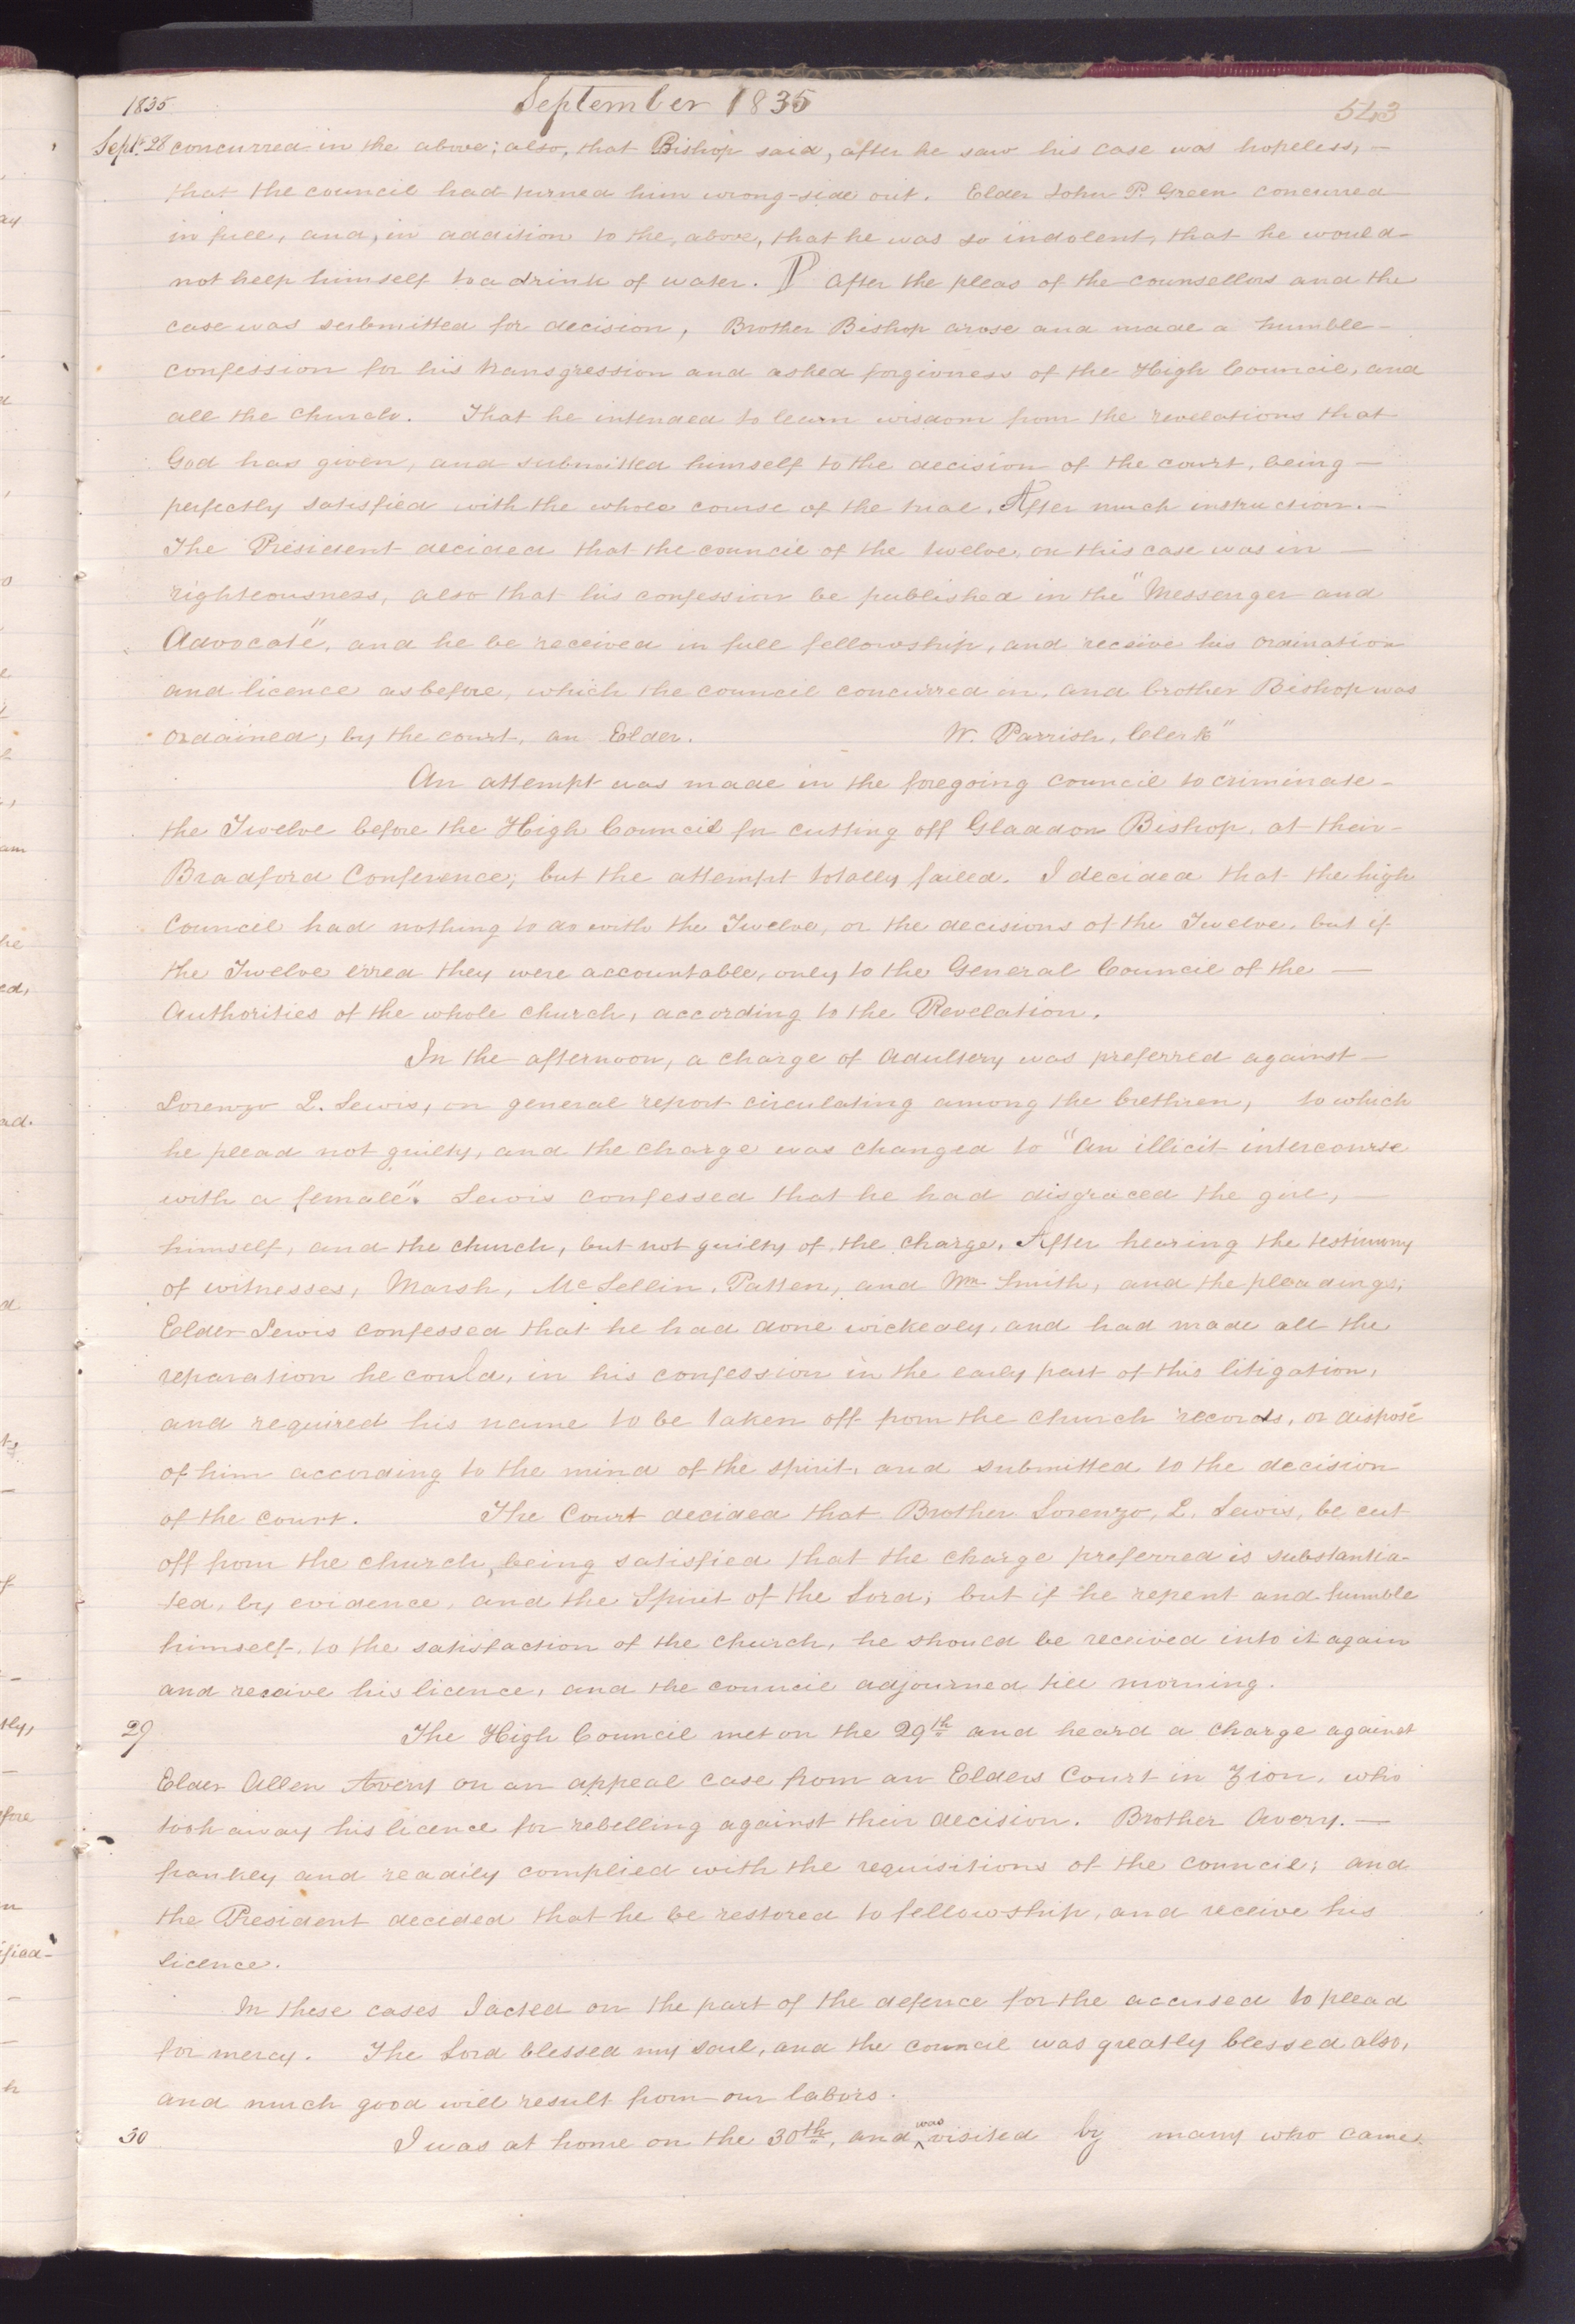 1835 September 1835 543
Sept. 28 concurred in the above; also, that Bishop said, after he saw his case was hopeless, —
that the council had turned him wrong-side out. Elder John P. Green concurred
in full, and, in addition to the, above, that he was so indolent, that he would
not help himself to a drink of water. P After the pleas of the counsellors and the
case was submitted for decision, Brother Bishop arose and made a humble —
confession for his transgression and asked forgivness of the High Council, and
all the church. That he intended to learn wisdom from the revelations that
God has given, and submitted himself to the decision of the court, being —
perfectly satisfied with the whole course of the trial. After much instruction. —
The President decided that the council of the twelve, on this case was in —
righteousness, also that his confession be published in the "Messenger and
Advocate", and he be received in full fellowship, and receive his ordination
and licence as before, which the council concurred in, and brother Bishop was
ordained, by the court, an Elder. W. Parrish, Clerk"
An attempt was made in the foregoing council to criminate —
the Twelve before the High Council for cutting off Gladdon Bishop, at their —
Bradford Conference; but the attempt totally failed. I decided that the high
Council had nothing to do with the Twelve, or the decisions of the Twelve. but if
the Twelve erred they were accountable, only to the General Council of the —
Authorities of the whole church, according to the Revelation.
In the afternoon, a charge of adultery was preferred against —
Lorenzo L. Lewis, on general report circulating among the brethren, to which
he plead not guilty, and the charge was changed to "An illicit intercourse
with a female". Lewis confessed that he had disgraced the girl,
himself, and the church, but not guilty of the charge. After hearing the testimony
of witnesses, Marsh, McLellin, Patten, and Wm Smith, and the pleadings;
Elder Lewis confessed that he had done wickedly, and had made all the
reparation he could, in his confession in the early part of this litigation,
and required his name to be taken off from the church records, or dispose
of him according to the mind of the spirit, and submitted to the decision
of the court. The Court decided that Brother Lorenzo, L. Lewis, be cut
off from the church, being satisfied that the charge preferred is substantia-
ted, by evidence, and the Spirit of the Lord; but if he repent and humble
himself, to the satisfaction of the church, he should be received into it again
and receive his licence, and the council adjourned till morning.
29 The High Council met on the 29th and heard a charge against
Elder Allen Avery on an appeal case from an Elders Court in Zion, who
took away his licence for rebelling against their decision. Brother Avery. —
frankly and readily complied with the requisitions of the council; and
the President decided that he be restored to fellowship, and receive his
licence.
In these cases I acted on the part of the defence for the accused to plead
for mercy. The Lord blessed my soul, and the council was greatly blessed also,
and much good will result from our labors.
30 I was at home on the 30th, and was visited by many who came